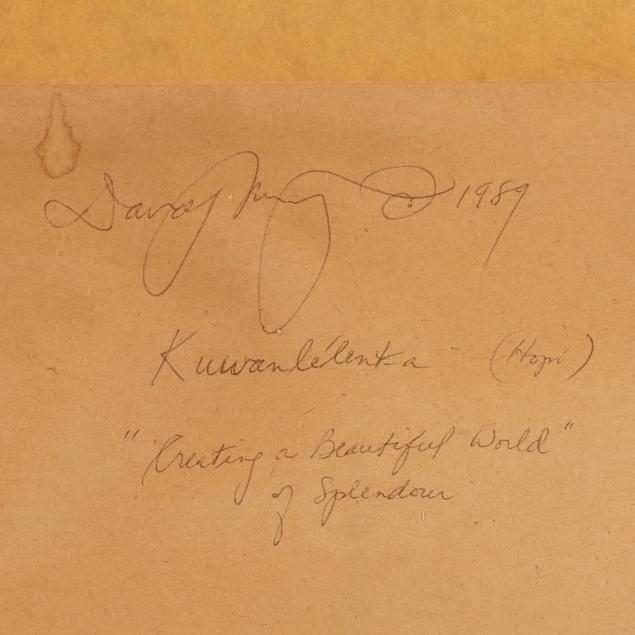 1989
Kuwanlélenta (Hopi)
"Creating a Beautiful World"
of Splendour